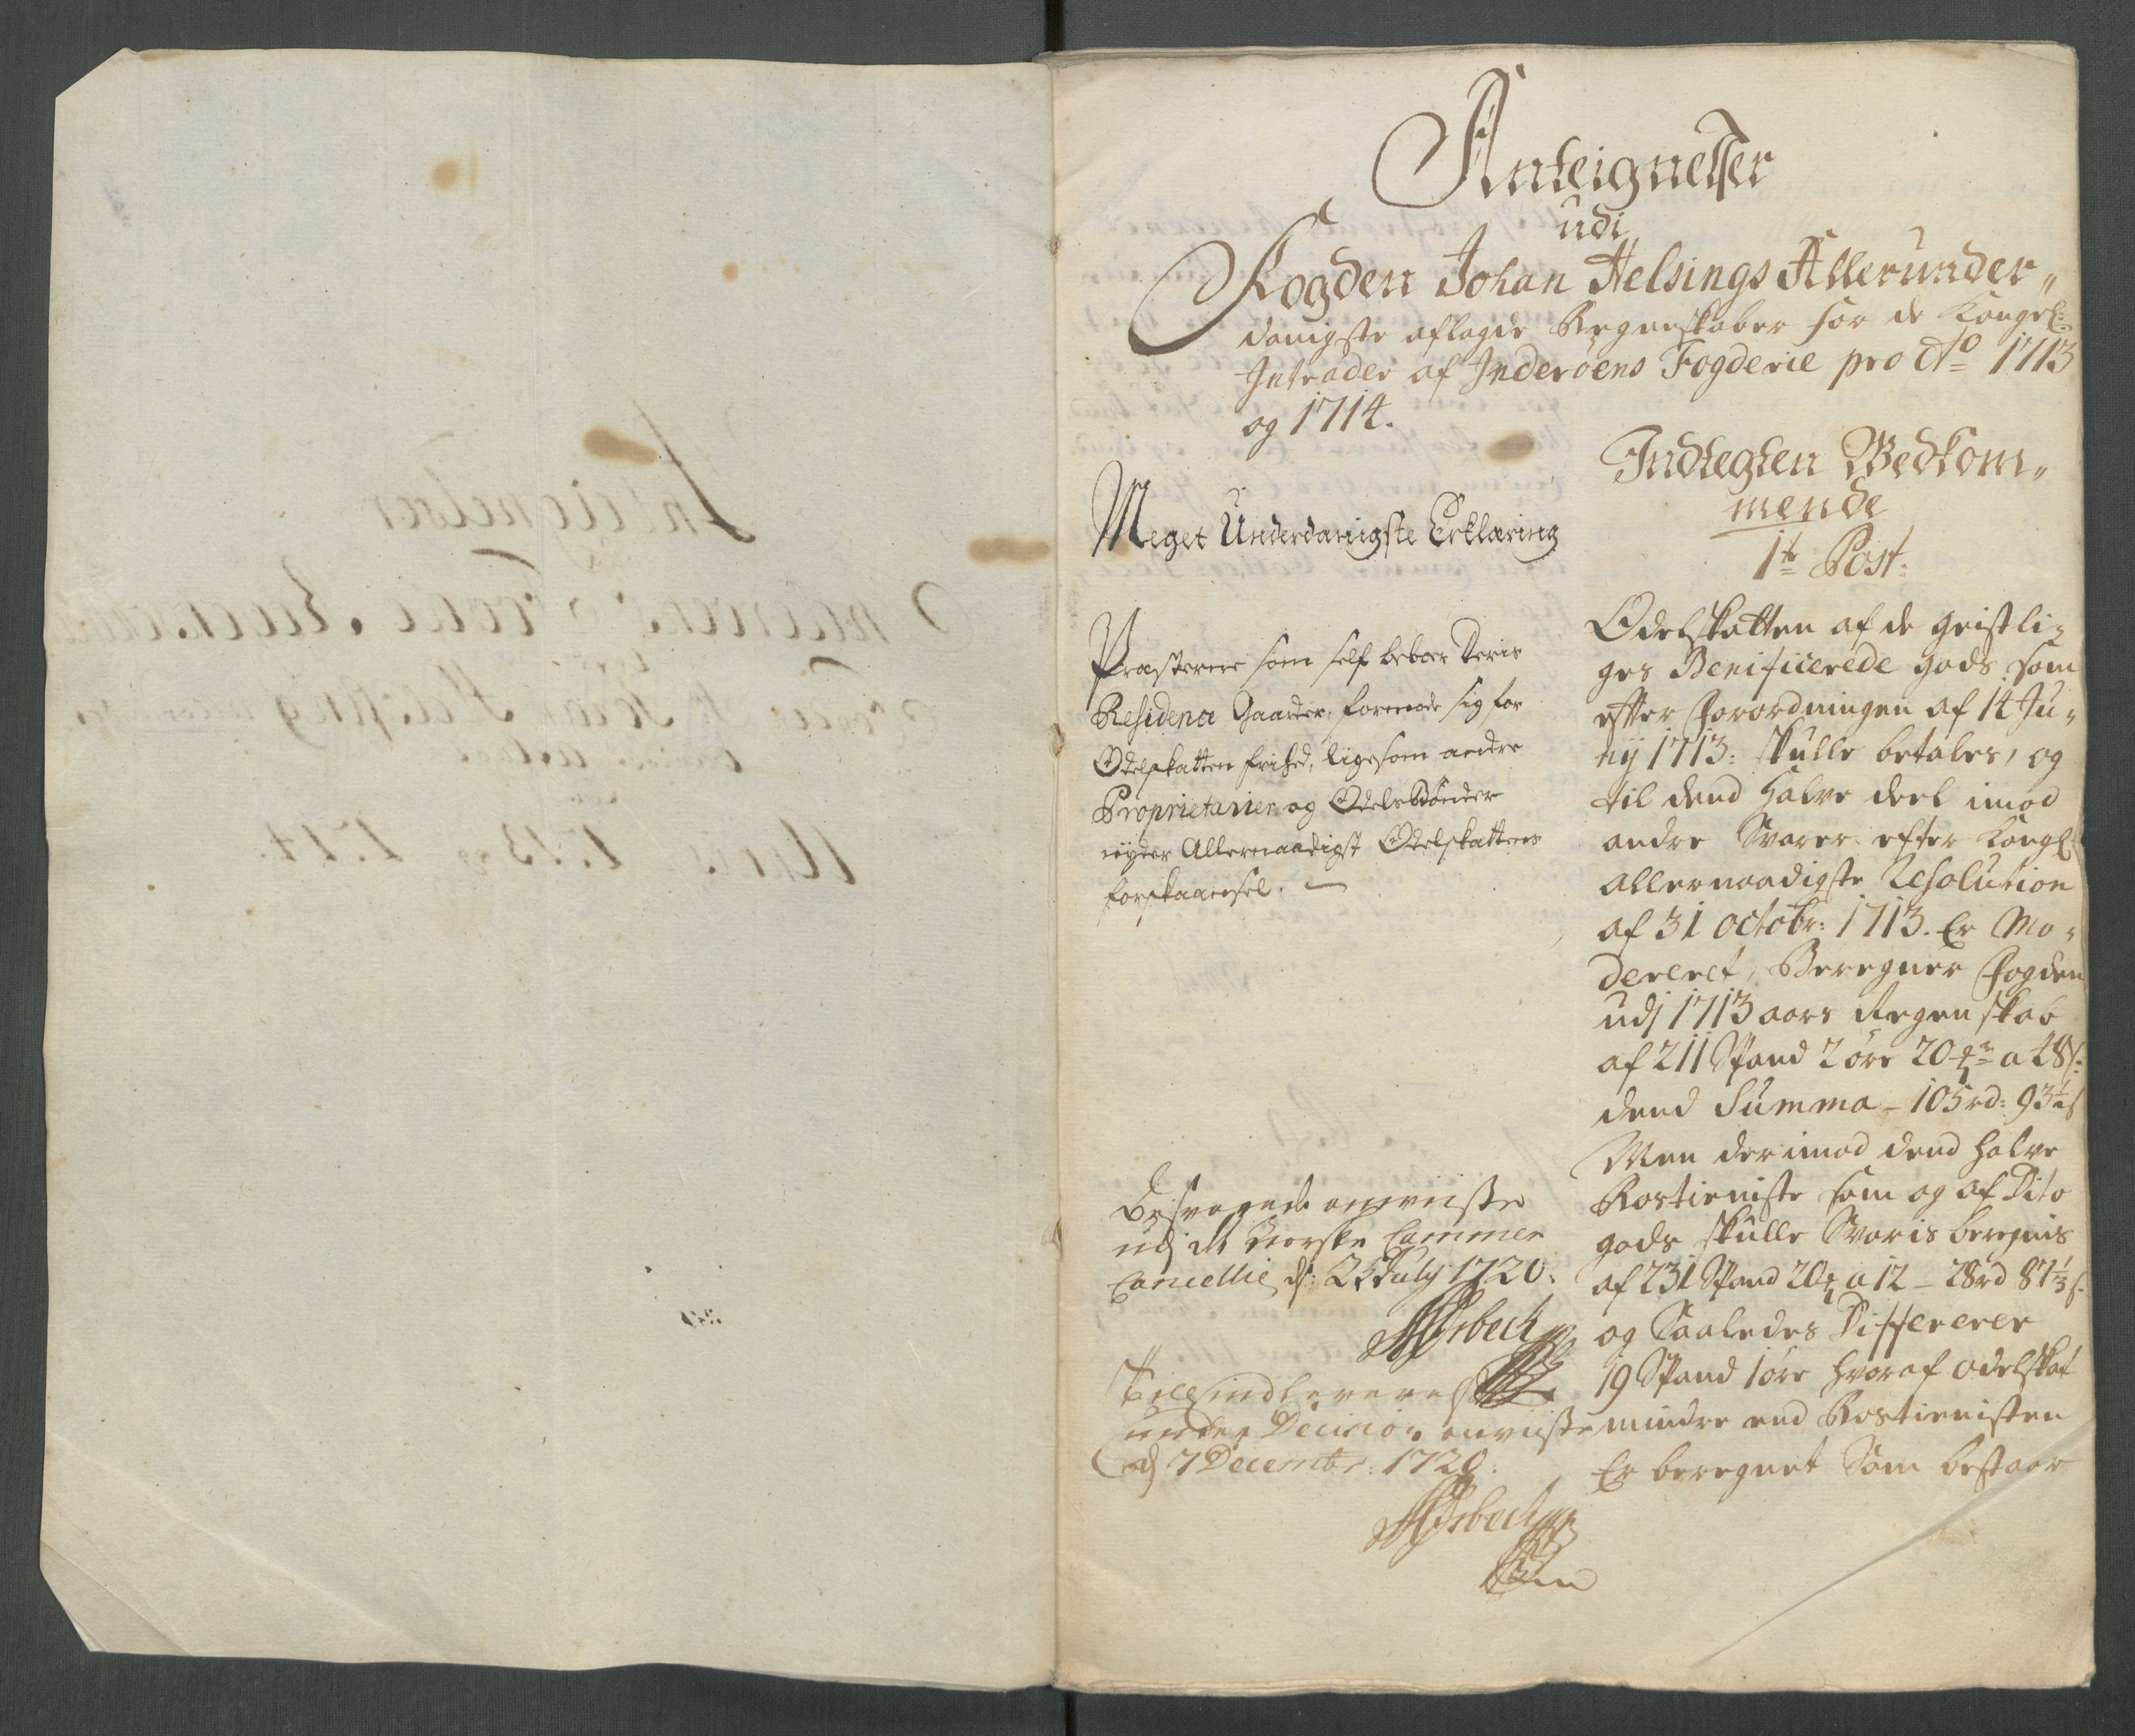 Anteignelser
udi
Fogden Johan Helsings Allerunder„
danigste aflagde Regneskaber for de Kongel:
Intrader af Inderöens Fogderie pro Ao 1713
og 1714.
Meget Underdanigste Erklæring
Præsterne som self beboer deris
Residence Gaarder, formode sig for
Odelskatten frihed, ligesom andre
Proprietarier og Odelsbönder
nyder Allernaadigst Odelskattens
forskaansel.
udj det Norske Cammer
Cancellie d: 25 July 1720.
under Decision
d 7 Decembr: 1720.
Indtegten Wedkom„
mende
1te Post:
Odelskatten af de geistli„
ges Benificerede gods som
efter Forordningen af 14 Ju„
nij 1713: skulle betales, og
til dend halve deel imod
andre Svarer efter Kongl:
allernaadigste Resolution
af 31 octobr: 1713. Er Mo„
dereret, Beregner Fogden
udj 1713 aars Regenskab
af 211 Spand 2 öre 20 a 48 s:
dend Summa - 105 rd: 93½ s
Men derimod dend halve
Rostieniste som og af Dito
gods skulle Svaris beregnis
af 231 Spand 20 a 12 - 28 rd 87⅓ s.
og Saaledes Differerer
19 Spand 1 öre hvoraf odelskat
mindre end Rostienisten
Er beregnet Som bestaar